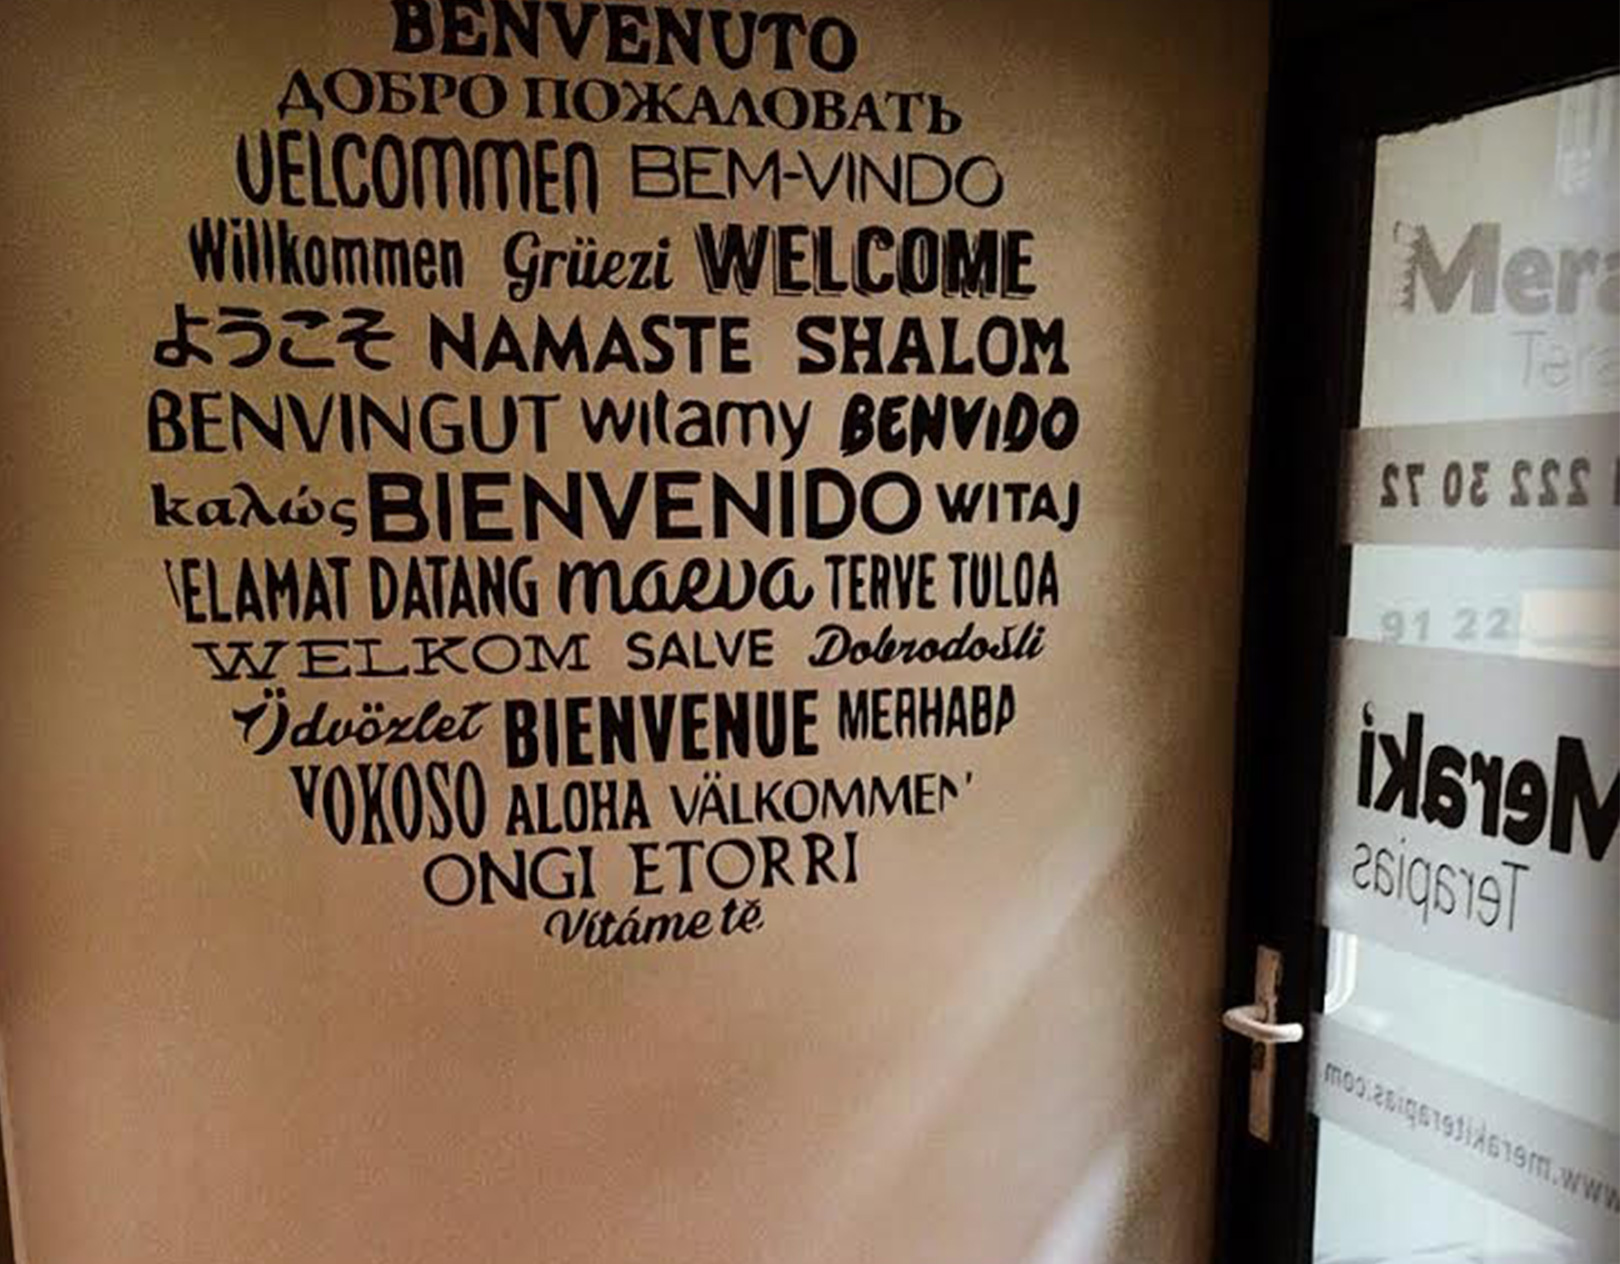 BENVENUTO
ДОБРО ПОЖАЛОВАТЬ
VELCOMMEN BEM-VINDO
Willkommen Grüezi WELCOME
ようこそ NAMASTE SHALOM
BENVINGUT witamy BENVIDO
καλώς BIENVENIDO WITAJ
ELAMAT DATANG maeva TERVE TULOA
WELKOM SALVE Dobrodošli
Üdvözlet BIENVENUE MERHABA
YOKOSO ALOHA VÄLKOMMEN
ONGI ETORRI
Vítáme tě
Mera
Tera
222 30 72
91 22
Meraki
Terapias
www.merakiterapias.com